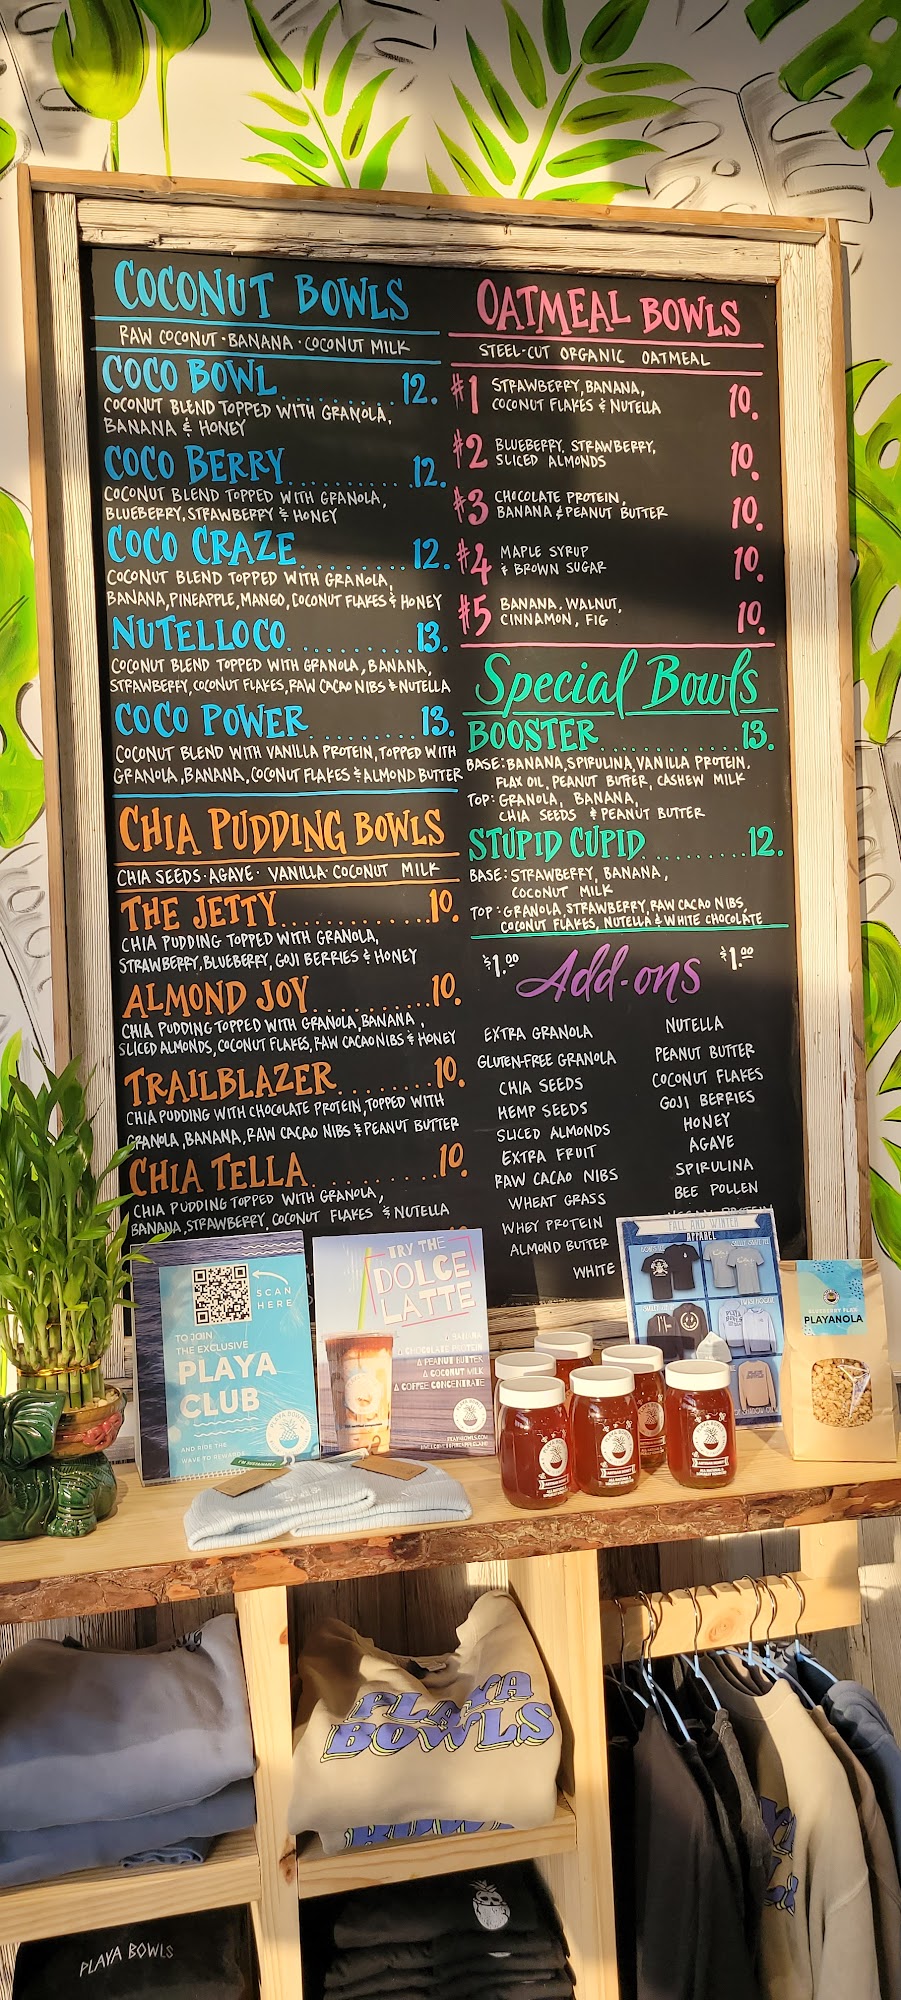 COCONUT BOWLS
RAW COCONUT · BANANA · COCONUT MILK
COCO BOWL........12.
COCONUT BLEND TOPPED WITH GRANOLA,
BANANA & HONEY
COCO BERRY..........12.
COCONUT BLEND TOPPED WITH GRANOLA,
BLUEBERRY, STRAWBERRY & HONEY
COCO CRAZE........12.
COCONUT BLEND TOPPED WITH GRANOLA,
BANANA, PINEAPPLE, MANGO, COCONUT FLAKES & HONEY
NUTELLOCO.........13.
COCONUT BLEND TOPPED WITH GRANOLA, BANANA,
STRAWBERRY, COCONUT FLAKES, RAW CACAO NIBS & NUTELLA
COCO POWER........13.
COCONUT BLEND WITH VANILLA PROTEIN, TOPPED WITH
GRANOLA, BANANA, COCONUT FLAKES & ALMOND BUTTER
CHIA PUDDING BOWLS
CHIA SEEDS · AGAVE · VANILLA · COCONUT MILK
THE JETTY...........10.
CHIA PUDDING TOPPED WITH GRANOLA,
STRAWBERRY, BLUEBERRY, GOJI BERRIES & HONEY
ALMOND JOY.........10.
CHIA PUDDING TOPPED WITH GRANOLA, BANANA,
SLICED ALMONDS, COCONUT FLAKES, RAW CACAO NIBS & HONEY
TRAILBLAZER.......10.
CHIA PUDDING WITH CHOCOLATE PROTEIN, TOPPED WITH
GRANOLA, BANANA, RAW CACAO NIBS & PEANUT BUTTER
CHIA TELLA..........10.
CHIA PUDDING TOPPED WITH GRANOLA,
BANANA, STRAWBERRY, COCONUT FLAKES & NUTELLA
OATMEAL BOWLS
STEEL-CUT ORGANIC OATMEAL
#1 STRAWBERRY, BANANA,
COCONUT FLAKES & NUTELLA 10.
#2 BLUEBERRY, STRAWBERRY,
SLICED ALMONDS 10.
#3 CHOCOLATE PROTEIN,
BANANA & PEANUT BUTTER 10.
#4 MAPLE SYRUP
& BROWN SUGAR 10.
#5 BANANA, WALNUT,
CINNAMON, FIG 10.
Special Bowls
BOOSTER..........13.
BASE: BANANA, SPIRULINA, VANILLA PROTEIN,
FLAX OIL, PEANUT BUTTER, CASHEW MILK
TOP: GRANOLA, BANANA,
CHIA SEEDS & PEANUT BUTTER
STUPID CUPID........12.
BASE: STRAWBERRY, BANANA,
COCONUT MILK
TOP: GRANOLA, STRAWBERRY, RAW CACAO NIBS,
COCONUT FLAKES, NUTELLA & WHITE CHOCOLATE
$1.00 Add-ons $1.00
EXTRA GRANOLA
GLUTEN-FREE GRANOLA
CHIA SEEDS
HEMP SEEDS
SLICED ALMONDS
EXTRA FRUIT
RAW CACAO NIBS
WHEAT GRASS
WHEY PROTEIN
ALMOND BUTTER
WHITE
NUTELLA
PEANUT BUTTER
COCONUT FLAKES
GOJI BERRIES
HONEY
AGAVE
SPIRULINA
BEE POLLEN
VEGAN PROTEIN
SCAN
HERE
TO JOIN
THE EXCLUSIVE
PLAYA
CLUB
AND RIDE THE
WAVE TO REWARDS
TRY THE
DOLCE
LATTE
BANANA
CHOCOLATE PROTEIN
PEANUT BUTTER
COCONUT MILK
COFFEE CONCENTRATE
FALL AND WINTER
APPAREL
BLUEBERRY FLAX
PLAYANOLA
PLAYA
BOWLS
PLAYA BOWLS